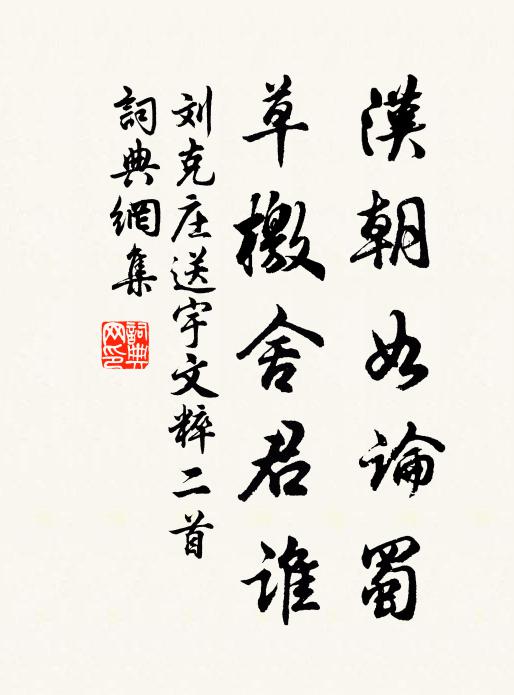 漢朝如論蜀
草檄舍君誰
刘克庄送宇文粹二首
詞典網集
詞典网印